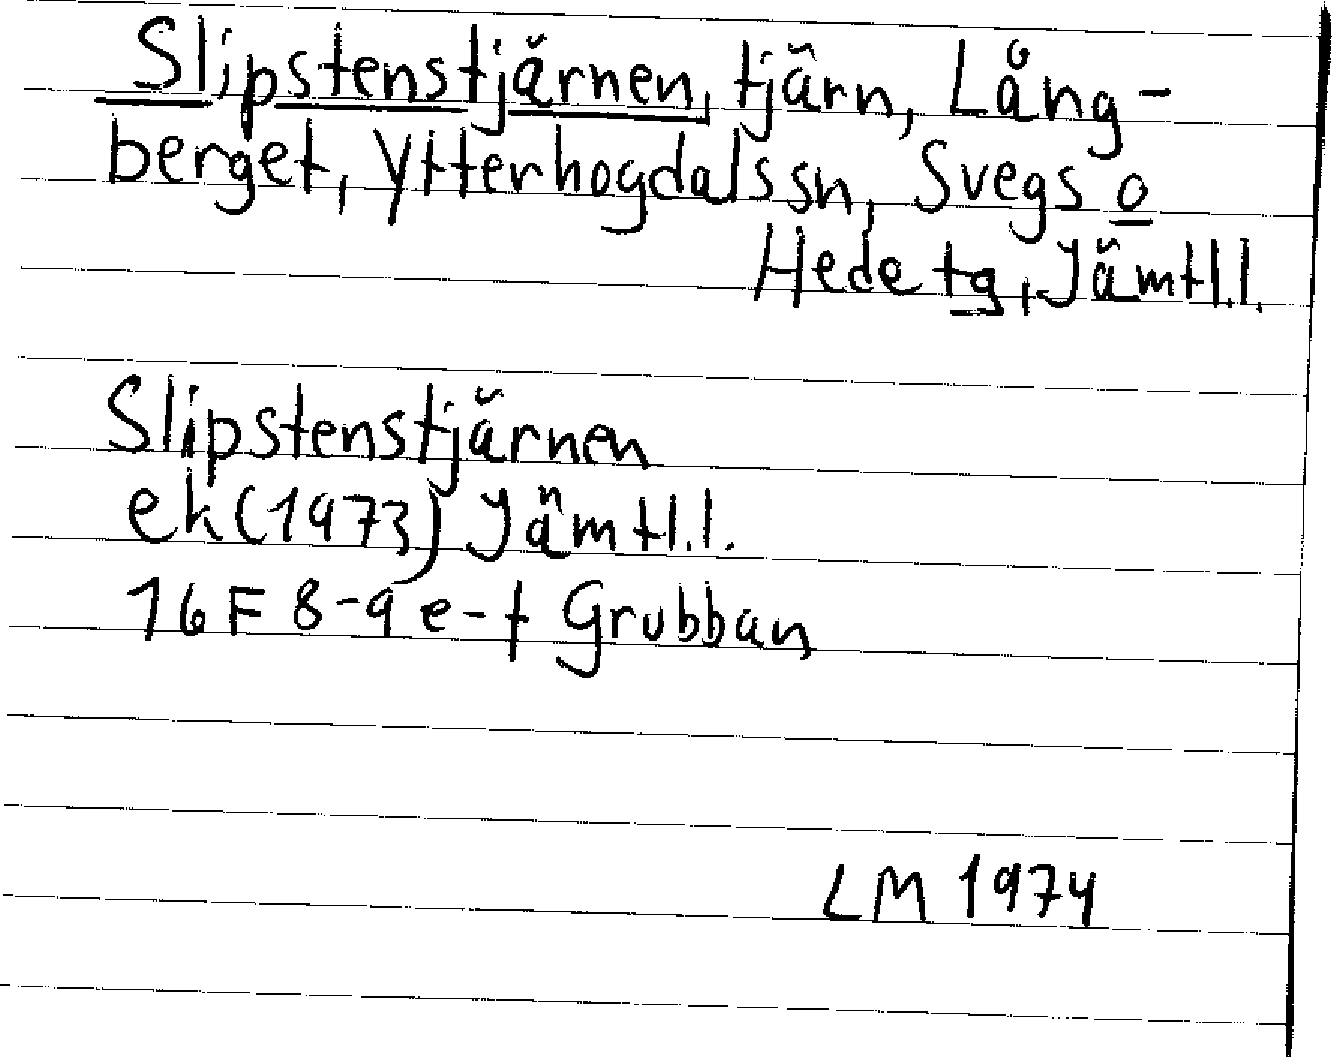 Slipstenstjärnen, tjärn, Lång-
berget, Ytterhogdals sn, Svegs o
Hede tg, Jämtl.l.
Slipstenstjärnen
ek (1973) Jämtl.l.
16 F 8-9 e-f Grubban
LM 1974